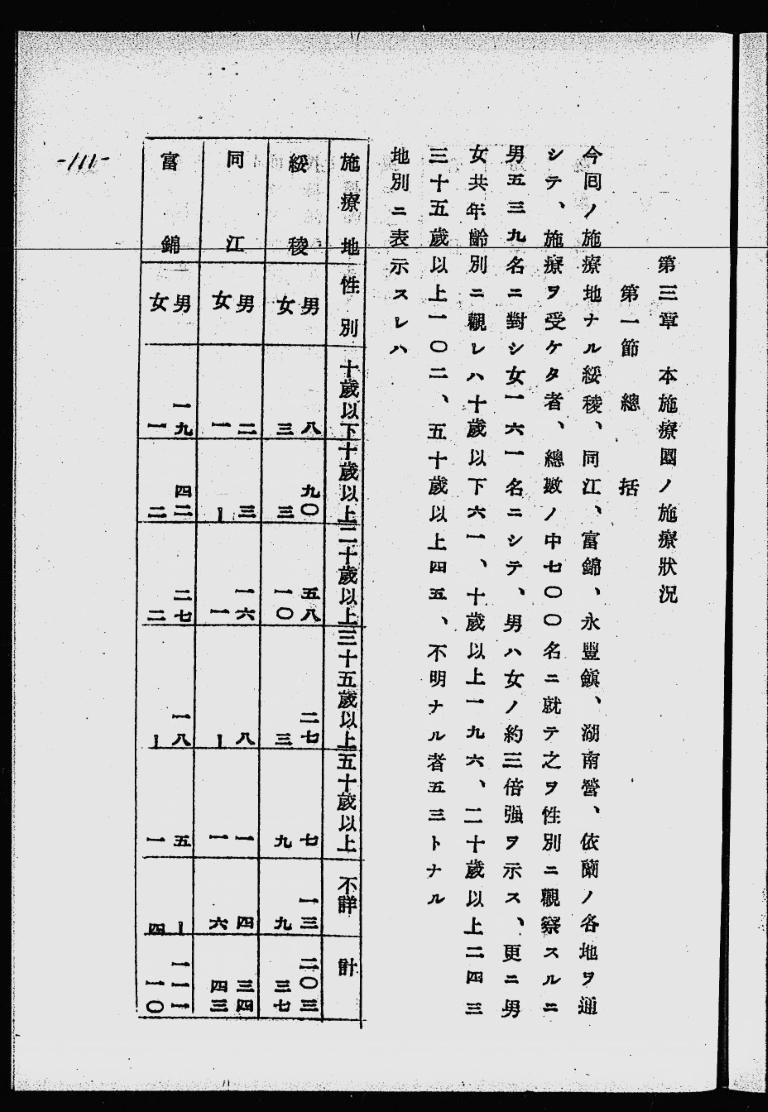 第三章　本施療團ノ施療狀況
第一節　總　括
今囘ノ施療地ナル綏稜、同江、富錦、永豐鎭、湖南營、依蘭ノ各地ヲ通
シテ、施療ヲ受ケタ者、總數ノ中七〇〇名ニ就テ之ヲ性別ニ觀察スルニ
男五三九名ニ對シ女一六一名ニシテ、男ハ女ノ約三倍强ヲ示ス、更ニ男
女共年齡別ニ觀レハ十歲以下六一、十歲以上一九六、二十歲以上二四三
三十五歲以上一〇二、五十歲以上四五、不明ナル者五三トナル
地別ニ表示スレハ
施療地　性別　十歲以下　十歲以上　二十歲以上　三十五歲以上　五十歲以上　不詳　計
綏稜　男　八　九〇　五八　二七　七　一三　二〇三
女　三　三　一〇　三　九　九　三七
同江　男　二　三　一六　八　一　四　三四
女　一　ー　一　ー　一　六　四三
富錦　男　一九　四二　二七　一八　五　ー　一一一
女　一　二　二　ー　一　四　一〇
-111-